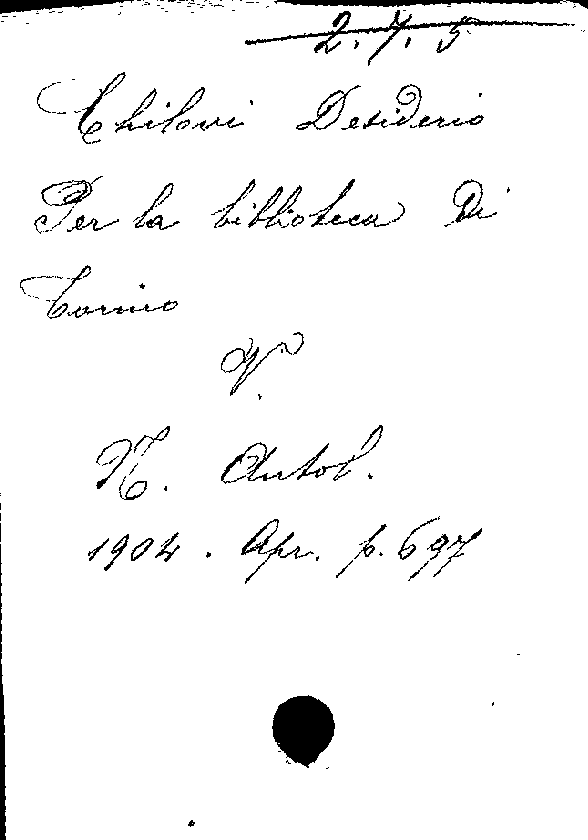 2. 7. 5
Chilovi Desiderio
Per la biblioteca Di
Torino
V.
N. Antol.
1904. Apr. p. 697